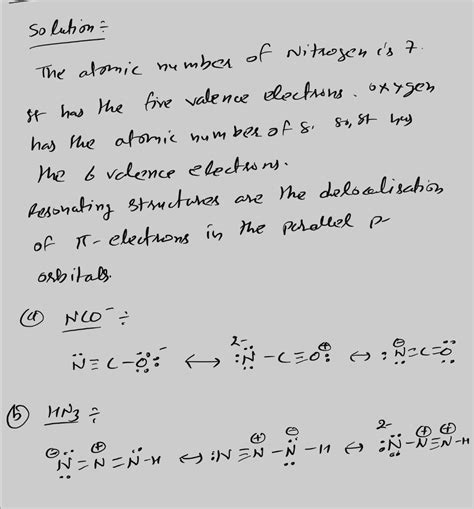 Solution ÷
The atomic number of Nitrogen is 7.
It has the five valence electrons. oxygen
has the atomic number of 8. so, It has
the 6 valence electrons.
Resonating structures are the delocalisation
of π-electrons in the parallel p
orbitals.
(a) NCO⁻ ÷
N̈ ≡ C – Ö:⁻ ⟷ :N̈²⁻ – C ≡ O:⊕ ⟷ :N̈⊖ = C = Ö
(b) HN3 ÷
⊖N̈ = N⊕ = N̈ – H ⟷ :N ≡ N⊕ – N̈⊖ – H ⟷ :N̈²⁻ – N⊕ ≡ N⊕ – H